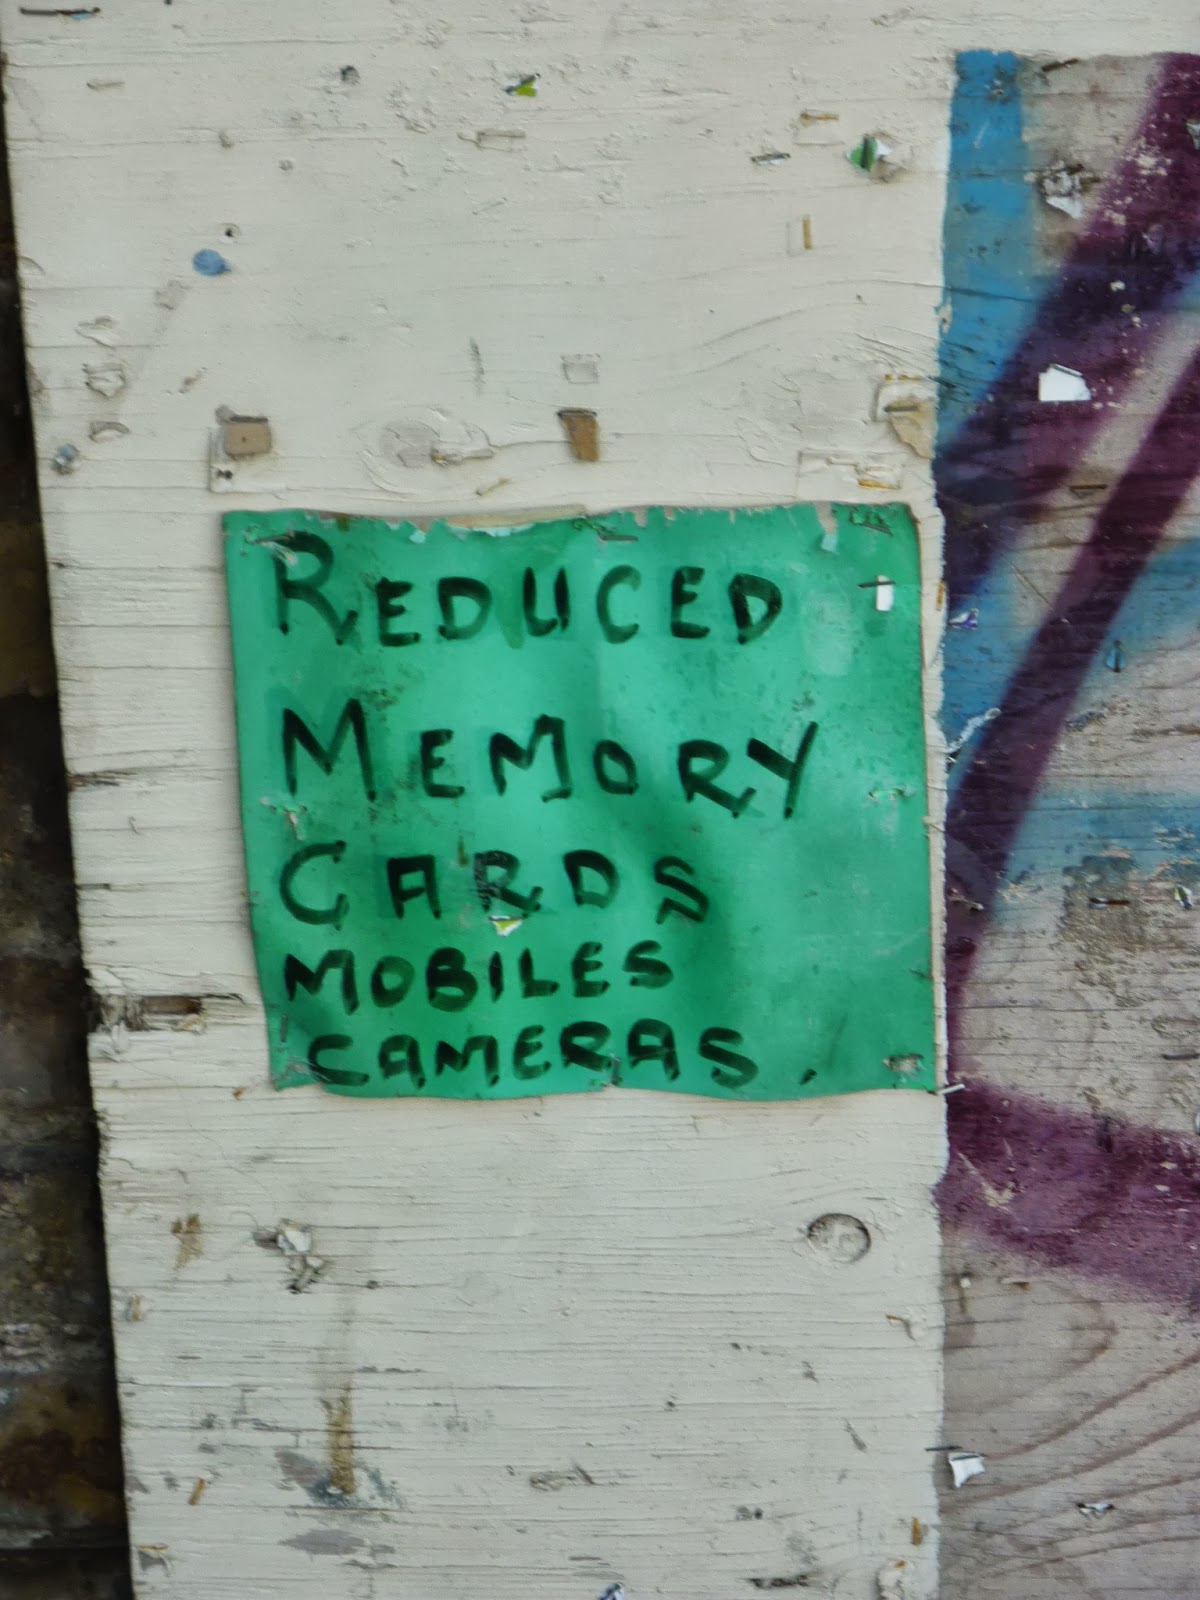 REDUCED
MEMORY
CARDS
MOBILES
CAMERAS.